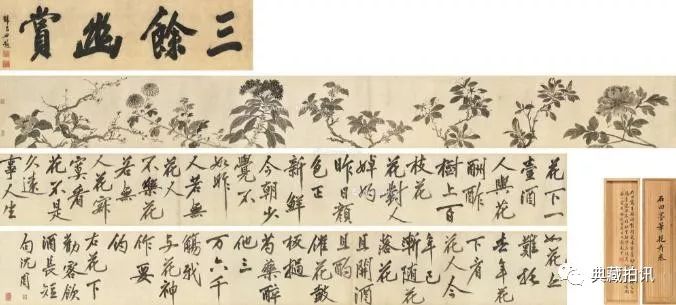 三餘幽賞
花下一
壺酒
人與花
酬酢
樹上百
枝花
花對人
婥妁
昨日顏
色正
新鮮
今朝少
覺不
如昨
人若無
花人
不樂花
若無
人花寂
寞看
花不是
久遠
事人生
如花亦
難托
去年花
下看
花人今
年已
漸隨花
落花
且開酒
且酌
催花鼓
板撾
芍藥醉
他三
万六千
觴我
与花神
作要
約
右花下
勸客飲
酒長短
句沈周
石田墨筆花卉卷
典藏拍讯